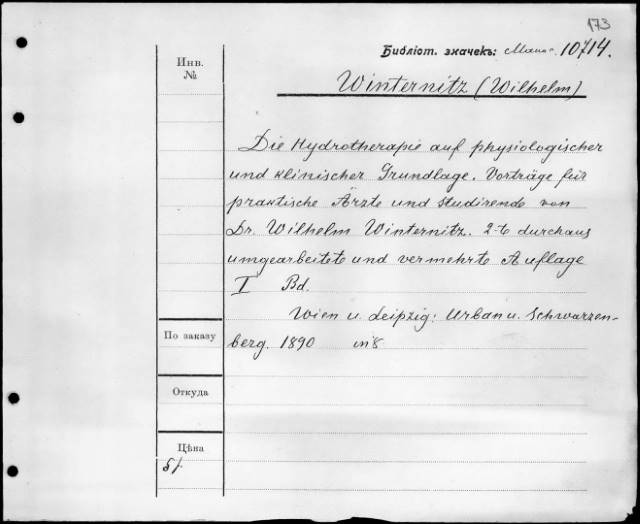 173
Библіот. значекъ: 10714.
Инв.
№
Winternitz (Wilhelm)
Die Hydrotherapie auf physiologischer
und klinischer Grundlage. Vorträge für
praktische Ärzte und studirende von
Dr. Wilhelm Winternitz. 2-te durchaus
umgearbeitete und vermehrte Auflage
I Bd.
Wien u. Leipzig: Urban u. Schwarzen-
berg. 1890 in 8
По заказу
Откуда
Цѣна